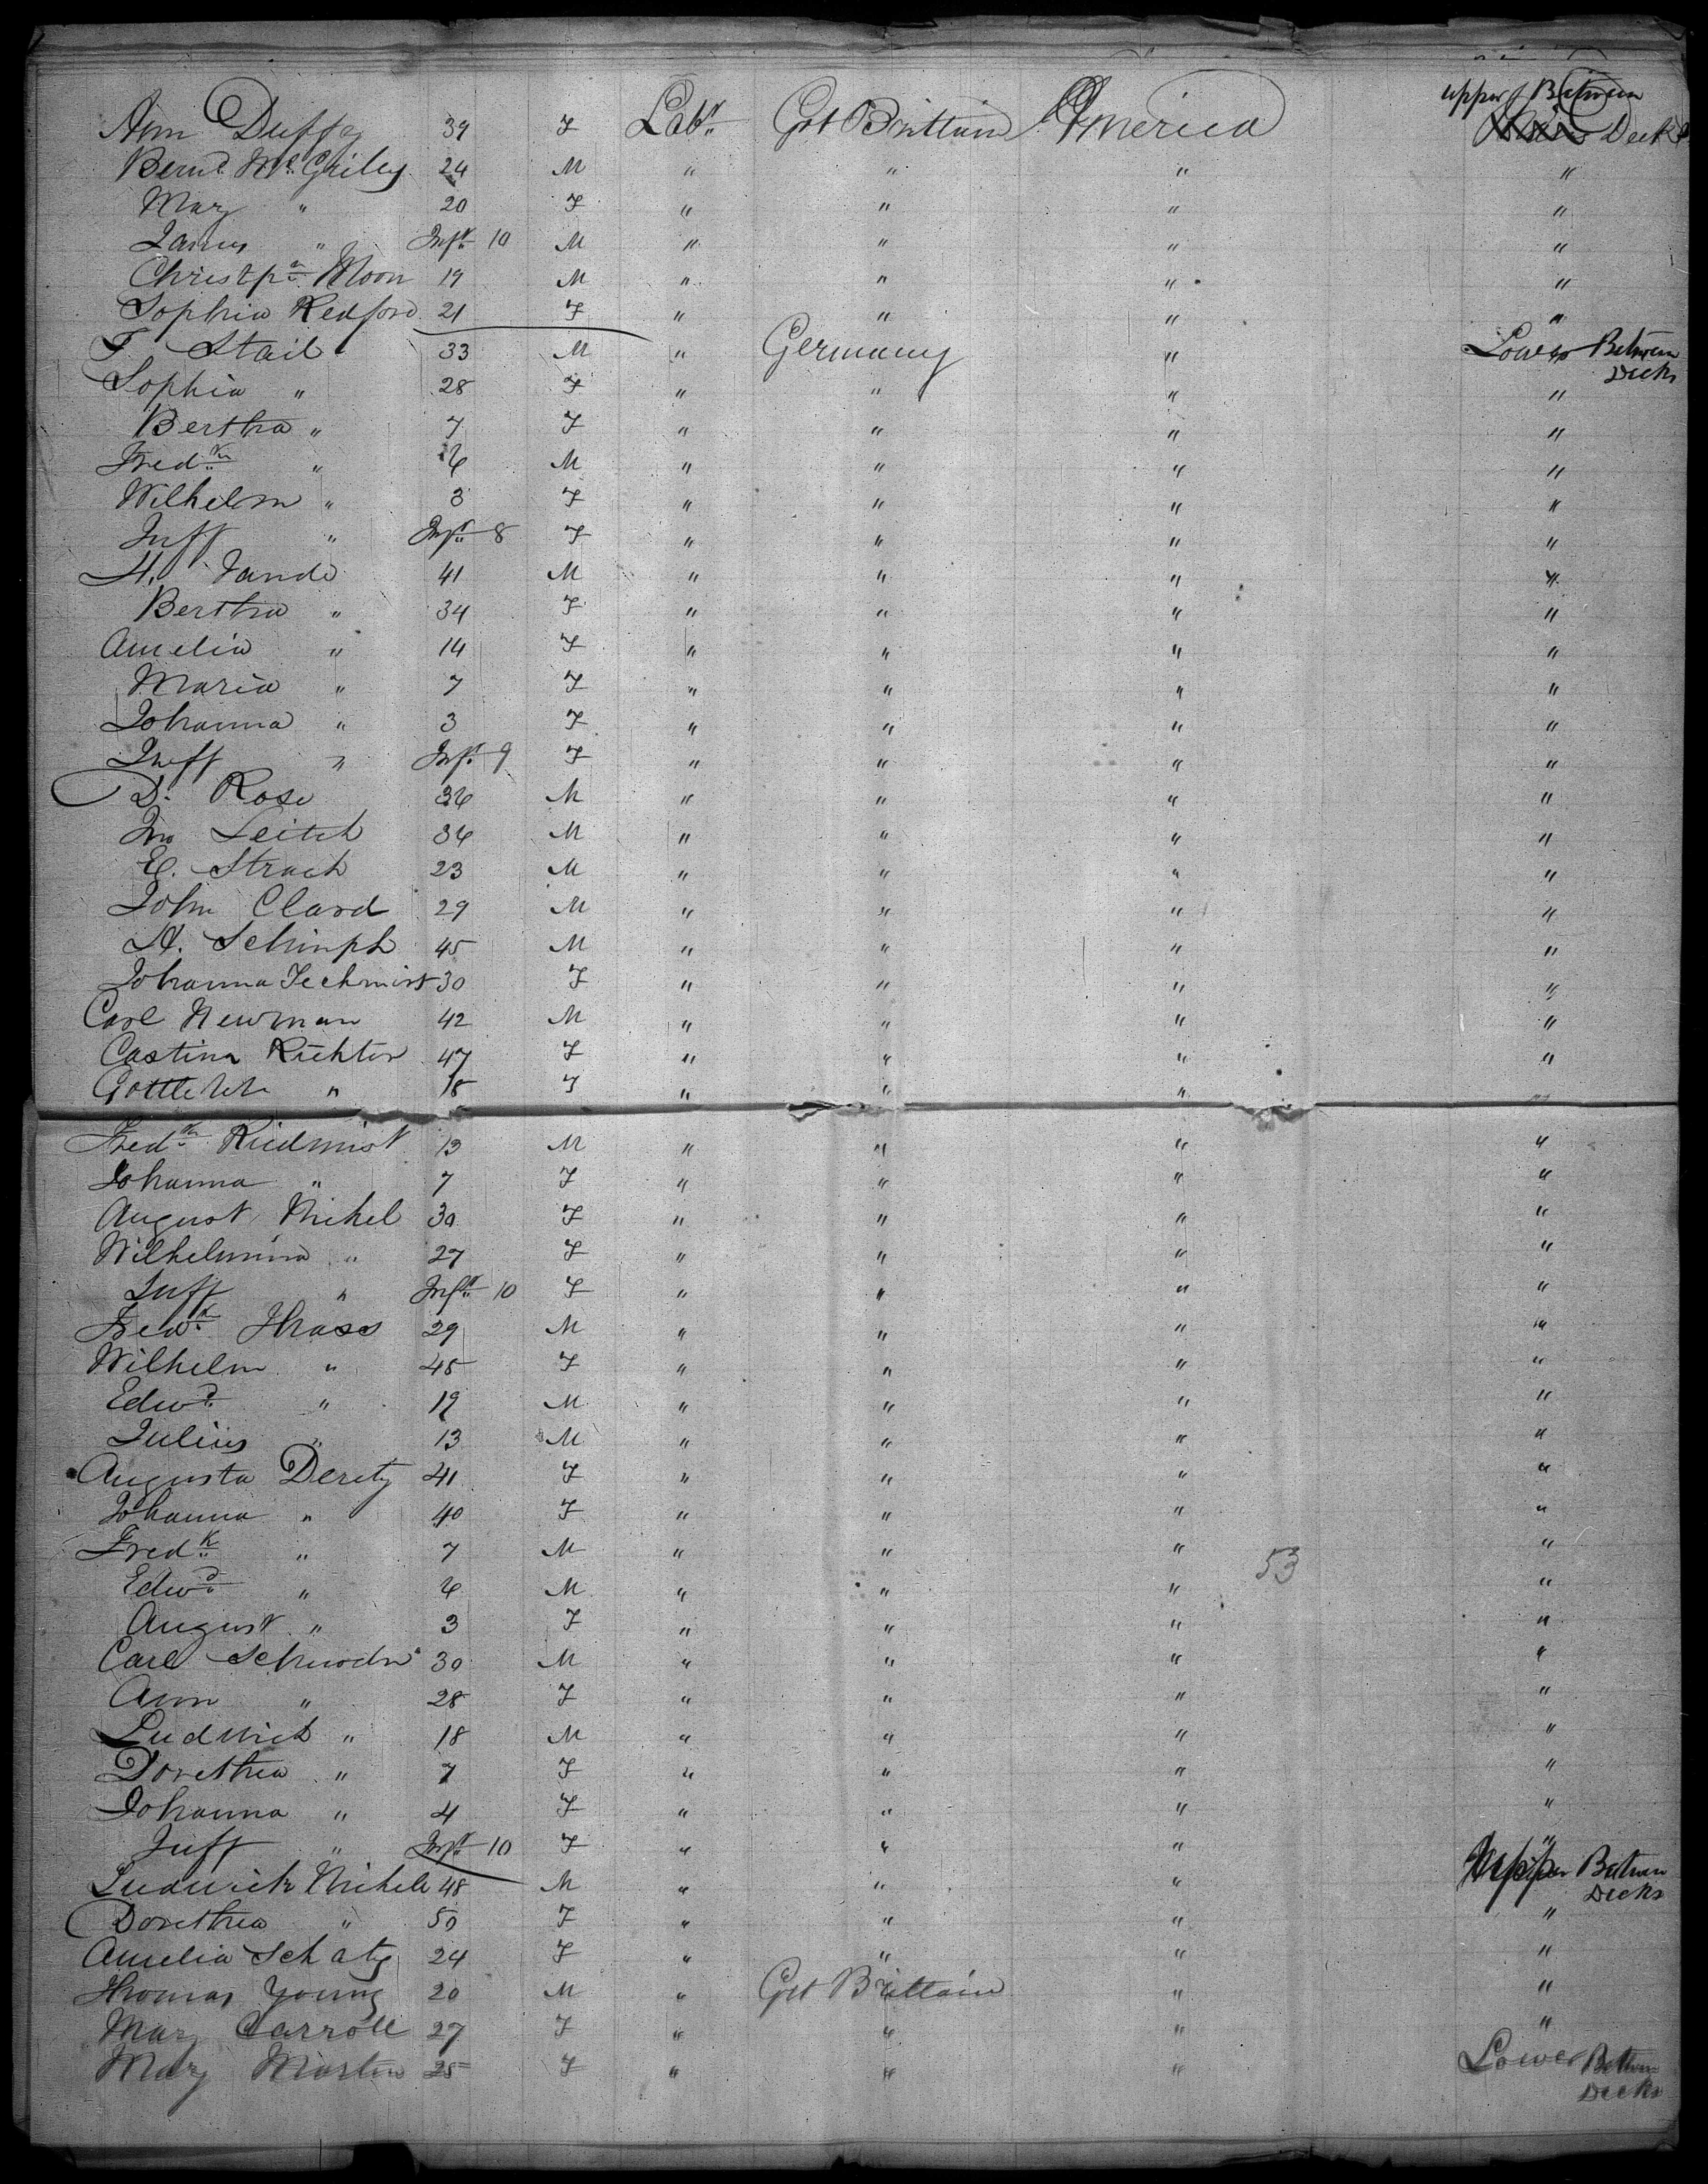 upper Between
Ann Duffy 39 F Labr Grt Brittain America Decks
Bernd McGriley 24 M " " " "
Mary " 20 F " " " "
James " Inft 10 M " " " "
Christpr Moon 19 M " " " "
Sophia Redford 21 F " " " "
F Stail 33 M " Germany " Lower Between
Decks
Sophia " 28 F " " " "
Bertha " 7 F " " " "
Fredk " 6 M " " " "
Wilhelm " 3 F " " " "
Inft " Inft 8 F " " " "
H. Jande 41 M " " " "
Bertha " 34 F " " " "
Amelia " 14 F " " " "
Maria " 7 F " " " "
Johanna " 3 F " " " "
Inft " Inft 9 F " " " "
D. Rose 36 M " " " "
Jno Leitch 36 M " " " "
E. Strach 23 M " " " "
John Clard 29 M " " " "
A. Schimph 45 M " " " "
Johanna Techmist 30 F " " " "
Carl Newman 42 M " " " "
Castina Richter 47 F " " " "
" 18 F " " " "
Fredk Riedmist 13 M " " " "
Johanna " 7 F " " " "
August Nichel 30 F " " " "
Wilhelmina " 27 F " " " "
Inft " Inft 10 F " " " "
Fredk Hrass 29 M " " " "
Wilhelm " 45 F " " " "
Edwd " 19 M " " " "
Julius " 13 M " " " "
Augusta Derety 41 F " " " "
Johanna " 40 F " " " "
Fredk " 7 M " " " "
53
Edwd " 6 M " " " "
August " 3 F " " " "
Carl 30 M " " " "
Ann " 28 F " " " "
Ludwich " 18 M " " " "
Dorethea " 7 F " " " "
Johanna " 4 F " " " "
Inft " Inft 10 F " " " "
Ludwick Nichele 48 M " " " Upper Between
Decks
Dorethea " 50 F " " " "
Amelia Schatz 24 F " " " "
Thomas Young 20 M " Grt Brittain " "
Mary Carroll 27 F " " " "
Mary Martin 25 F " " " Lower Between
Decks